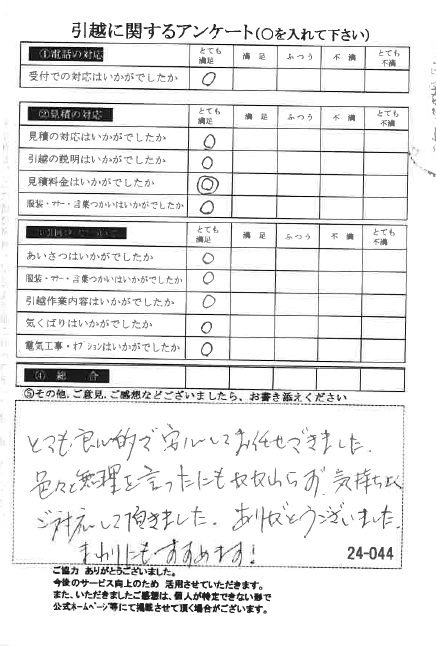 引越に関するアンケート(○を入れて下さい)
①電話の対応 とても満足 満足 ふつう 不満 とても不満
受付での対応はいかがでしたか ○
②見積の対応 とても満足 満足 ふつう 不満 とても不満
見積の対応はいかがでしたか ○
引越の説明はいかがでしたか ○
見積料金はいかがでしたか ◎
服装・マナー・言葉つかいはいかがでしたか ○
とても満足 満足 ふつう 不満 とても不満
あいさつはいかがでしたか ○
服装・マナー・言葉つかいはいかがでしたか ○
引越作業内容はいかがでしたか ○
気くばりはいかがでしたか ○
電気工事・オプションはいかがでしたか ○
④総合
⑤その他、ご意見、ご感想などございましたら、お書き添えください
とても良心的で安心してお任せできました。
色々と無理を言ったにも かかわらず、気持ちよく
ご対応して頂きました。ありがとうございました。
まわりにもすすめます!
24-044
ご協力 ありがとうございました。
今後のサービス向上のため 活用させていただきます。
また、いただきましたご感想は、個人が特定できない形で
公式ホームページ等にて掲載させて頂く場合がございます。